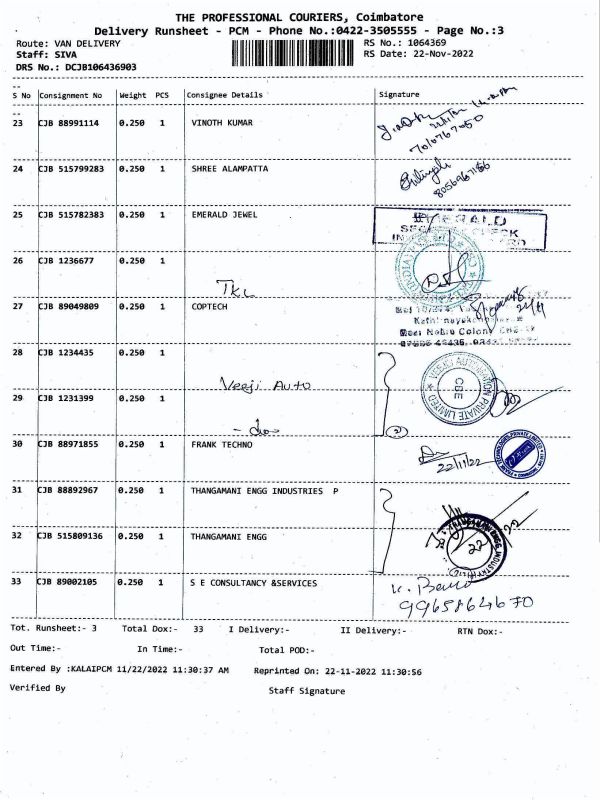 THE PROFESSIONAL COURIERS, Coimbatore
Delivery Runsheet - PCM - Phone No.:0422-3505555 - Page No.:3
Route: VAN DELIVERY RS No.: 1064369
Staff: SIVA RS Date: 22-Nov-2022
DRS No.: DCJB106436903
S No Consignment No Weight PCS Consignee Details Signature
23 CJB 88991114 0.250 1 VINOTH KUMAR
7010767050
24 CJB 515799283 0.250 1 SHREE ALAMPATTA
8056967156
25 CJB 515782383 0.250 1 EMERALD JEWEL
EMERALD
26 CJB 1236677 0.250 1
TKL
27 CJB 89049809 0.250 1 COPTECH
28 CJB 1234435 0.250 1
Veeji Auto
VEEJI AUTOMATION PRIVATE LIMITED
CBE
29 CJB 1231399 0.250 1
- do -
2
30 CJB 88971855 0.250 1 FRANK TECHNO
22/11/22
31 CJB 88892967 0.250 1 THANGAMANI ENGG INDUSTRIES P
32 CJB 515809136 0.250 1 THANGAMANI ENGG
33 CJB 89002105 0.250 1 S E CONSULTANCY &SERVICES
9965864670
Tot. Runsheet:- 3 Total Dox:- 33 I Delivery:- II Delivery:- RTN Dox:-
Out Time:- In Time:- Total POD:-
Entered By :KALAIPCM 11/22/2022 11:30:37 AM Reprinted On: 22-11-2022 11:30:56
Verified By Staff Signature